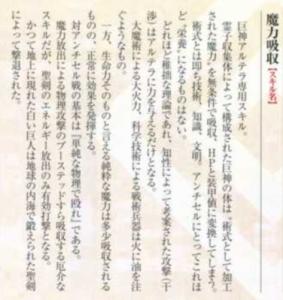 魔力吸収【スキル名】
巨神アルテラ専用スキル。
霊子収集体によって構成された巨神の体は「術式として加工
された魔力」を無条件で吸収、HPと装甲値に変換してしまう。
術式とは即ち技術、知識、文明。アンチセルにとってこれほ
ど〝栄養〟になるものはない。
どれほど稚拙な理論であれ、知性によって考案された攻撃（干
渉）はアルテラに力を与えるだけとなる。
大魔術による大火力、科学技術による戦術兵器は火に油を注
ぐようなもの。
一方、生命力そのものと言える純粋な魔力は多少吸収される
ものの、正常に効果を発揮する。
対アンチセル戦の基本は『単純な物理で殴れ』である。
魔力放出による物理攻撃のブーステッドすら吸収する厄介な
スキルだが、聖剣のエネルギー放出のみ有効打撃となる。
かつて地上に現れた白い巨人は地球の内海で鍛えられた聖剣
によって撃退された。